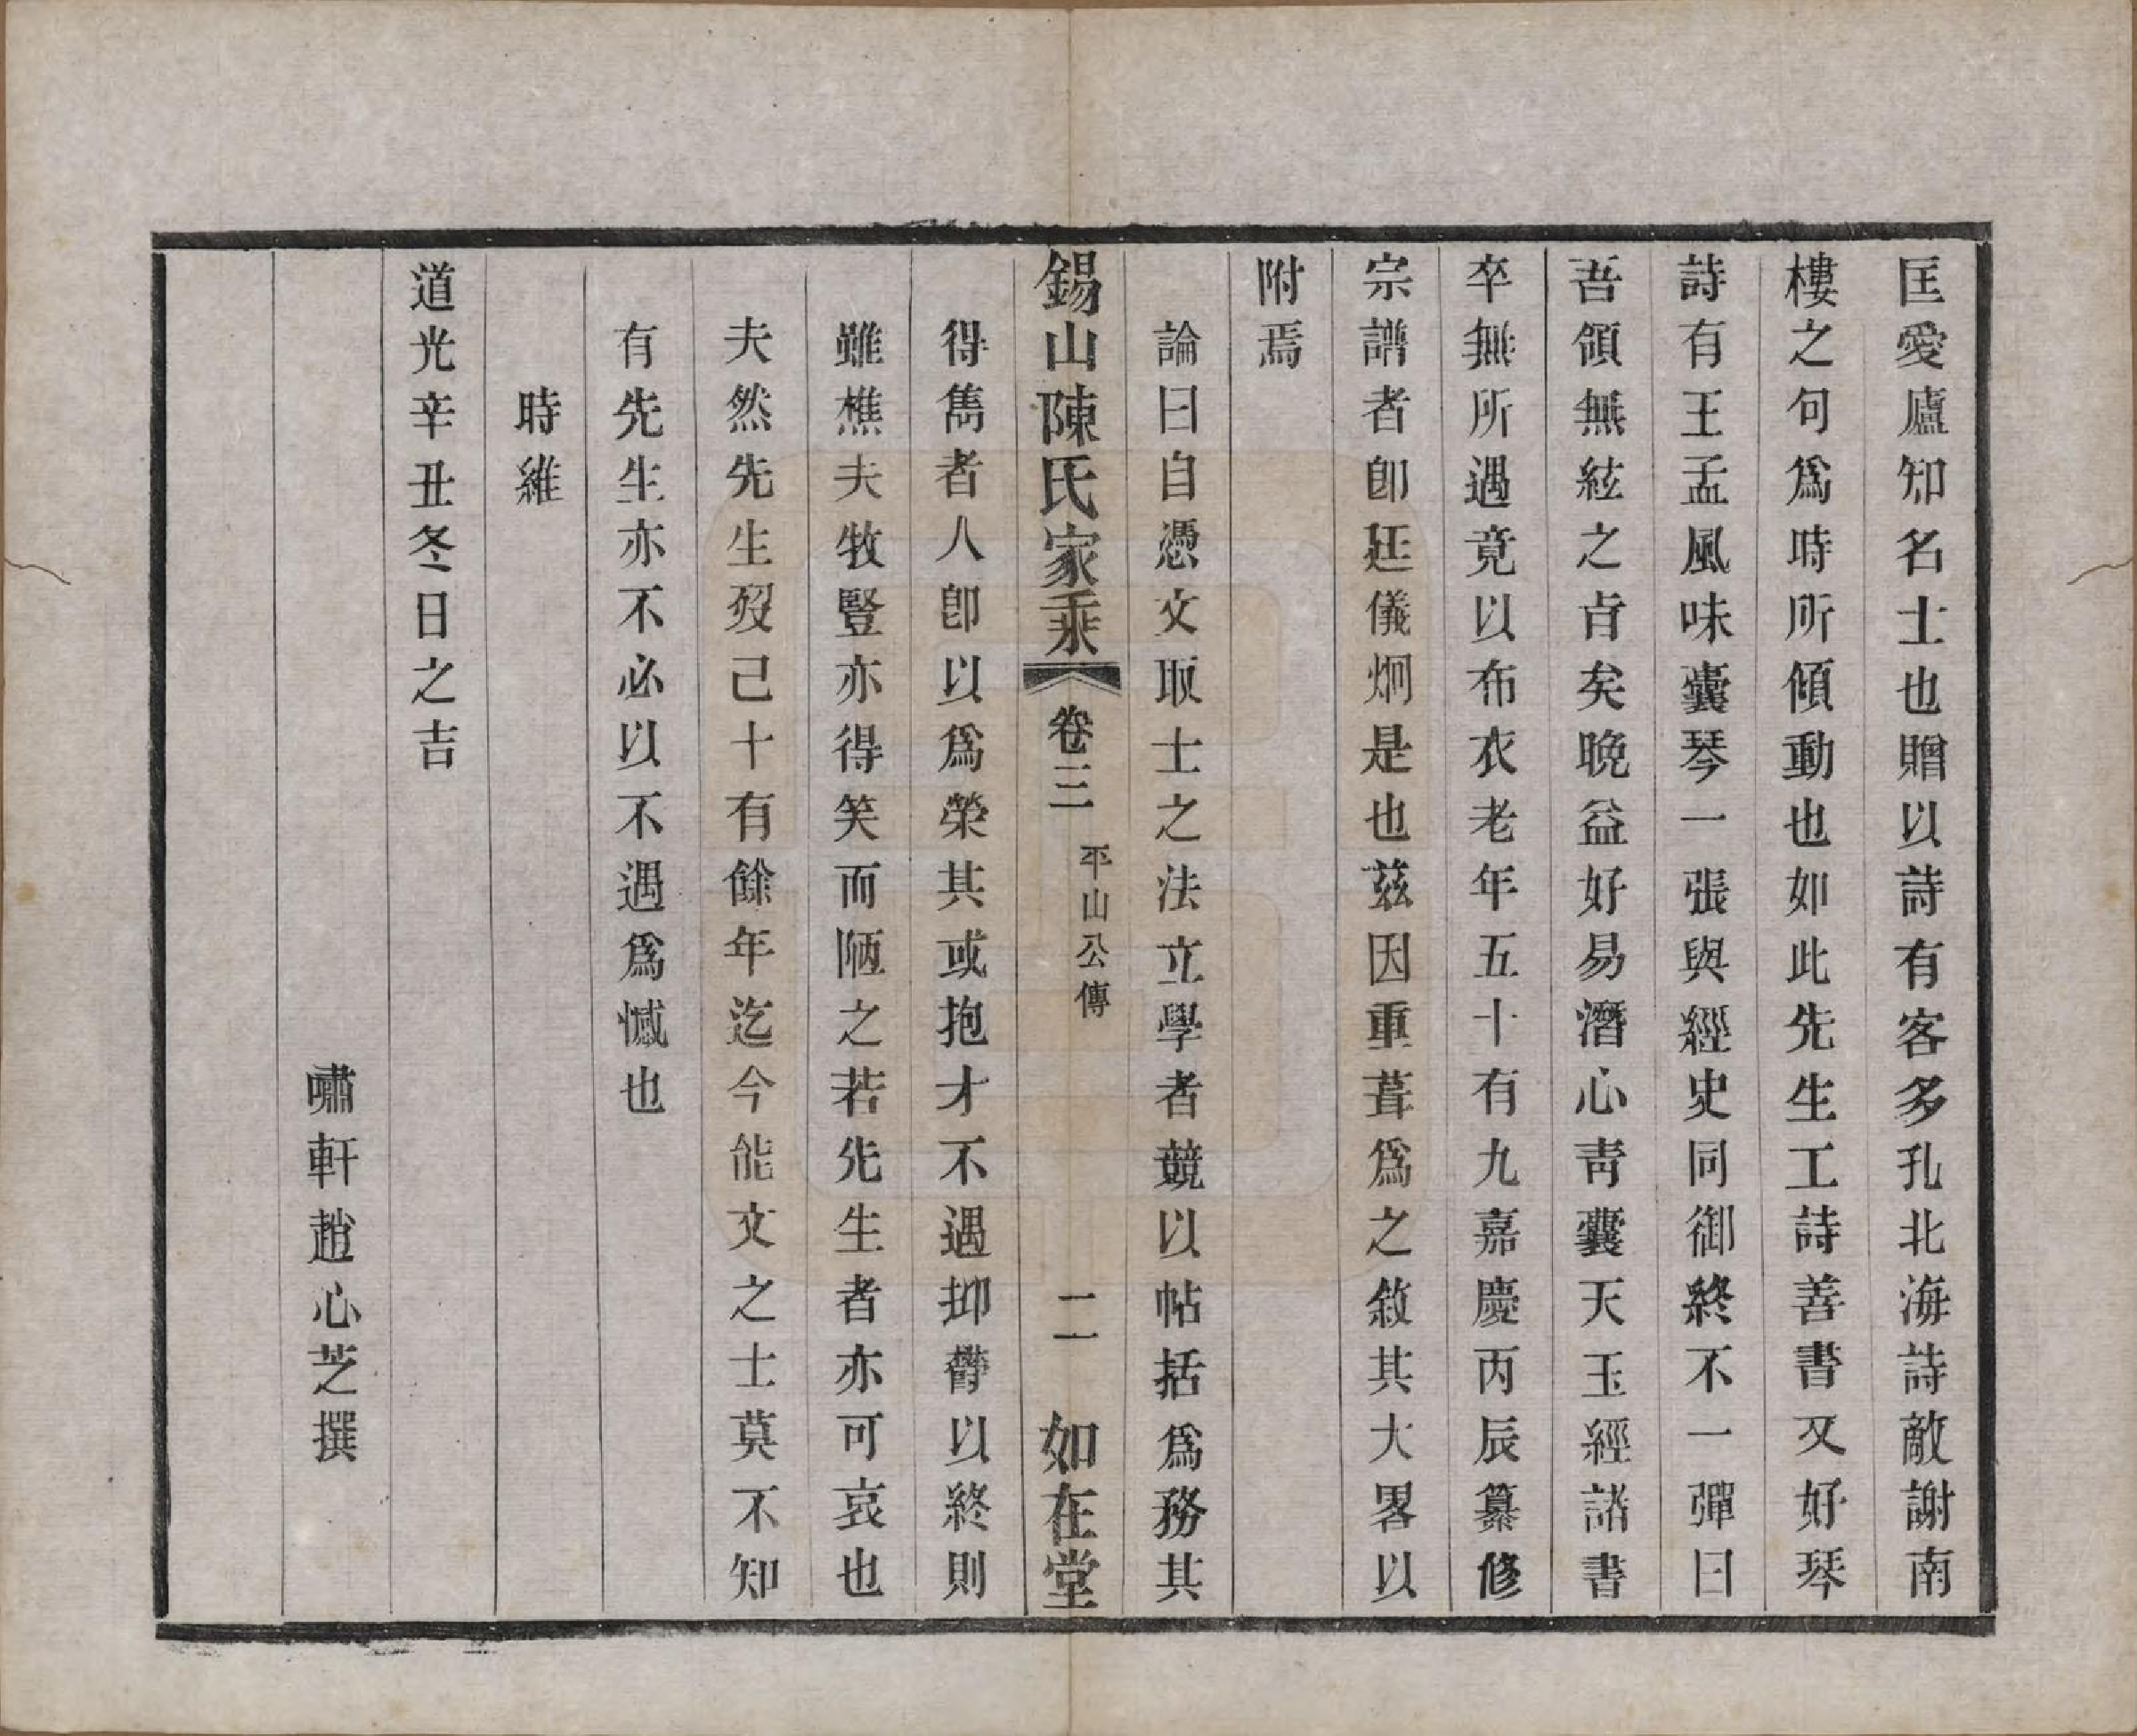 匡愛廬知名士也贈以詩有客多孔北海詩敵謝南
樓之句爲時所傾動也如此先生工詩善書又好琴
詩有王孟風味囊琴一張與經史同御終不一彈曰
吾領無絃之㫖矣晚益好易潛心靑囊天玉經諸書
卒無所遇竟以布衣老年五十有九嘉慶丙辰纂修
宗譜者卽廷儀炯是也茲因重葺爲之敘其大畧以
附焉
論曰自憑文取士之法立學者競以帖括爲務其
錫山陳氏家乘 卷三 平山公傳 二 如在堂
得雋者人卽以爲榮其或抱才不遇抑鬱以終則
雖樵夫牧豎亦得笑而陋之若先生者亦可哀也
夫然先生歿己十有餘年迄今能文之士莫不知
有先生亦不必以不遇爲憾也
時維
道光辛丑冬日之吉
嘯軒趙心芝撰